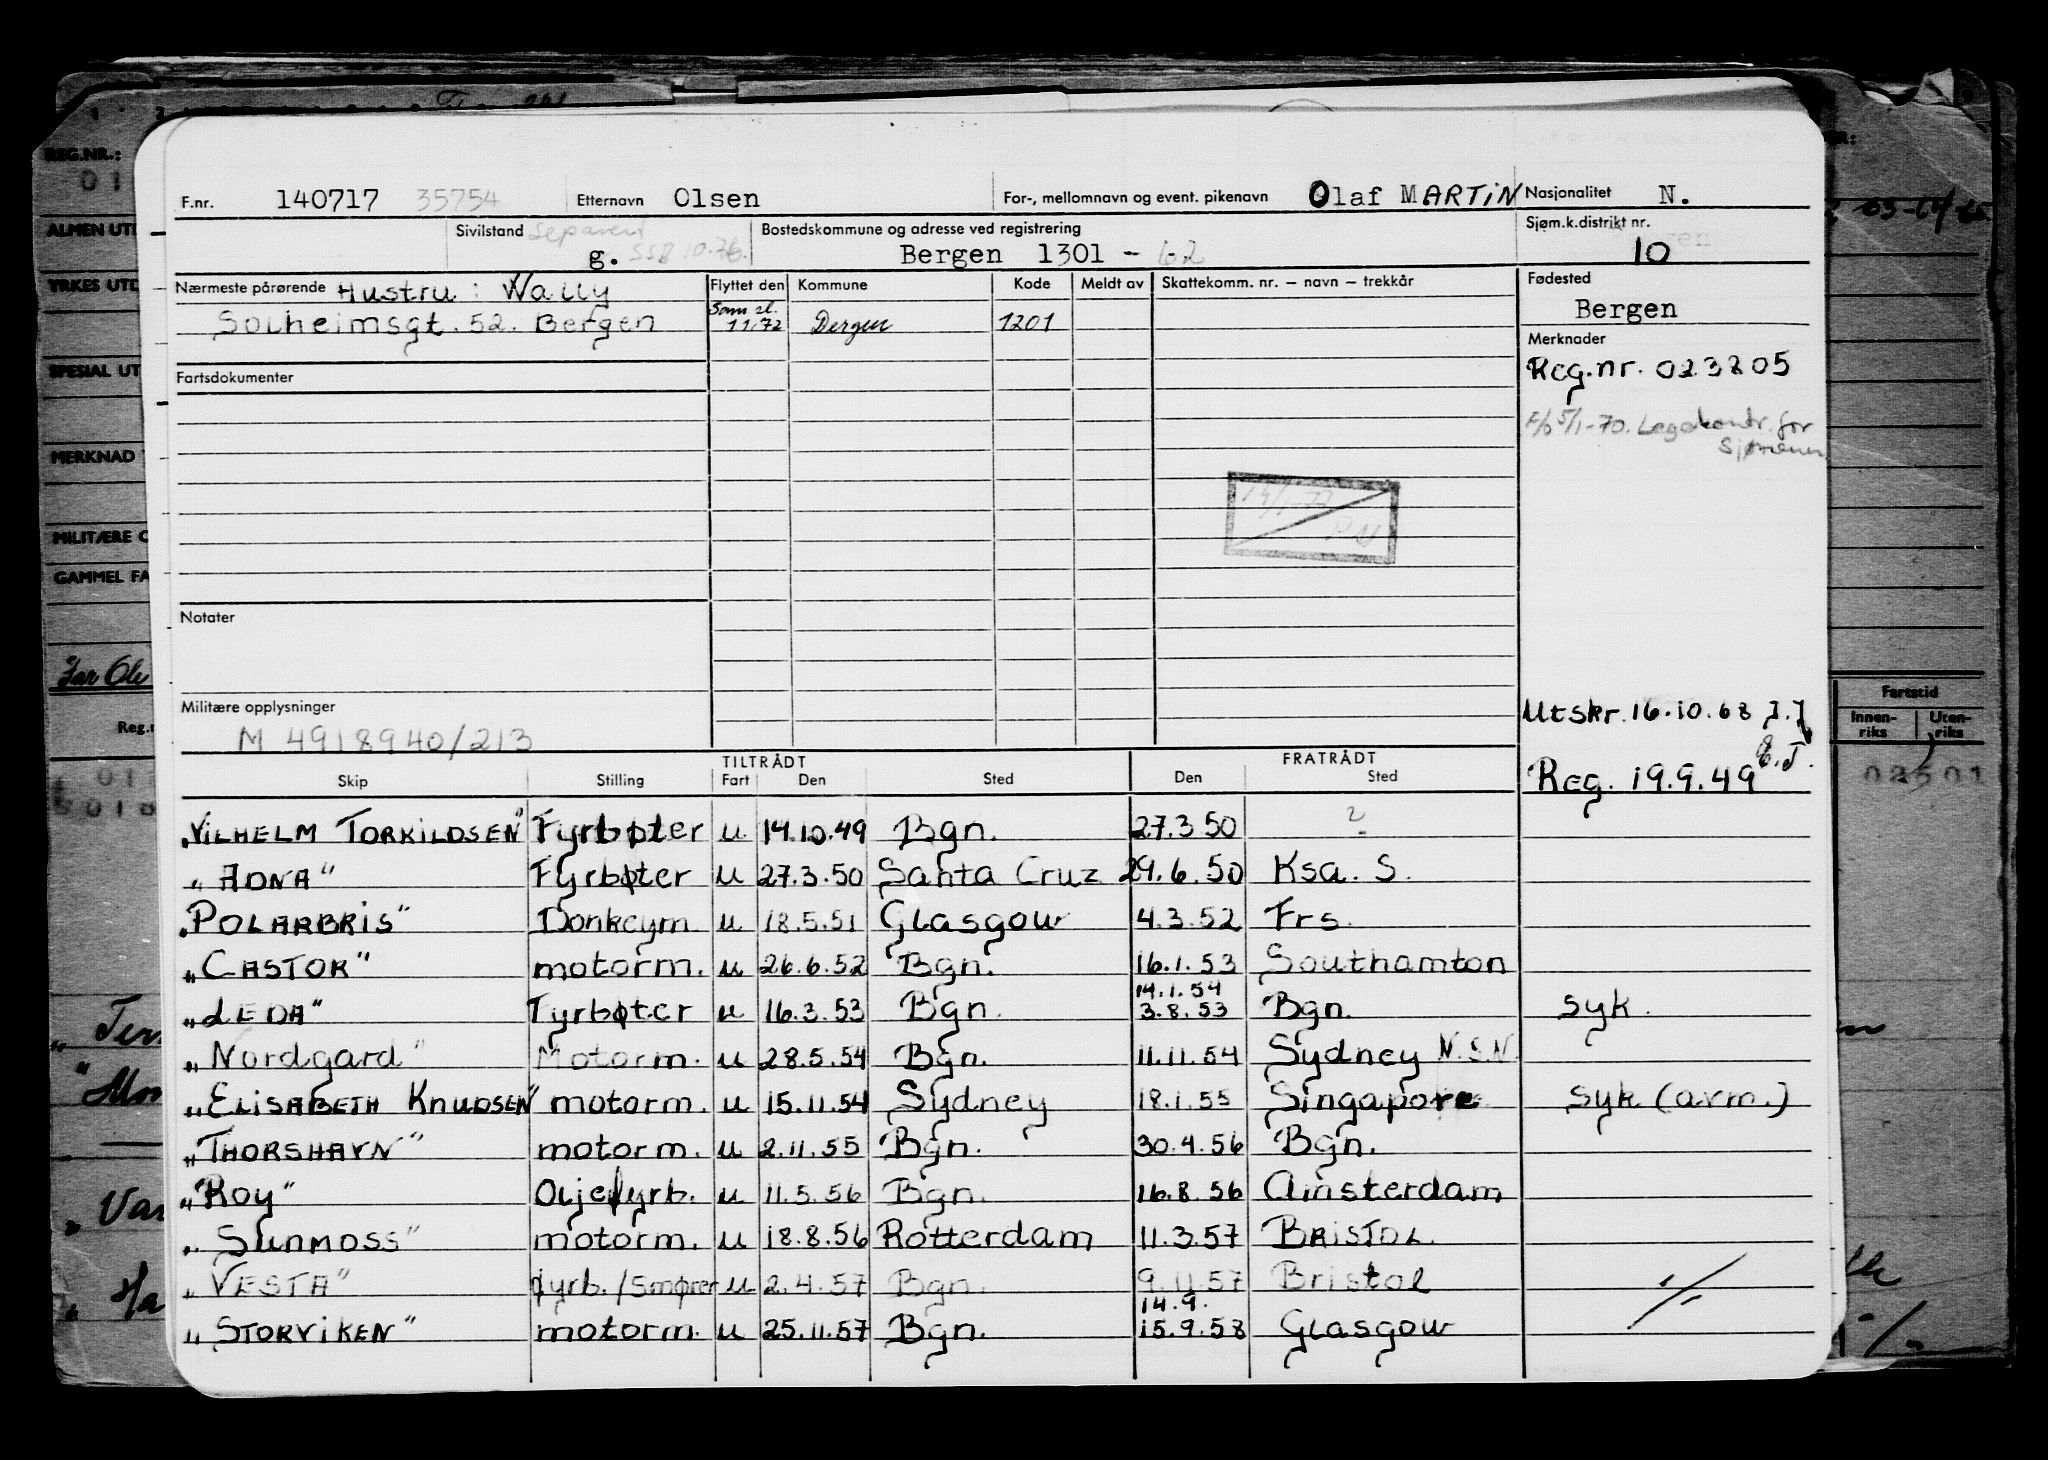 F.nr. 140717 35754 Etternavn Olsen For-, mellomnavn og event. pikenavn Olaf MARTIN Nasjonalitet N.
Sivilstand separert g. 558 10.76. Bostedskommune og adresse ved registrering Bergen 1301 - 62 Sjøm.k.distrikt nr. 10
Nærmeste pårørende Hustru: Wally Flyttet den Kommune Kode Meldt av Skattekomm. nr. – navn – trekkår Fødested
Solheimsgt. 52. Bergen 11.72 Bergen 1201 Bergen
Merknader
Reg.nr. 023205
Fartsdokumenter
5/1-70. Legekontr. for
Sjømenn
14/1-77
Notater
Militære opplysninger
M 4918940/213
Utskr. 16.10.68 J.J
Reg. 19.9.49 E.J.
TILTRÅDT FRATRÅDT
Skip Stilling Fart Den Sted Den Sted
"VILHELM TORKILDSEN" Fyrbøter u 14.10.49 Bgn. 27.3 50 ?
"ADNA" Fyrbøter u 27.3.50 Santa Cruz 29.6.50 Ksa. S.
"POLARBRIS" Donkeym u 18.5.51 Glasgow 4.3.52 Frs.
"CASTOR" motorm. u 26.6.52 Bgn. 16.1.53 Southamton
14.1.54
"LEDA" Fyrbøter u 16.3.53 Bgn. 3.8.53 Bgn. syk.
"Nordgard" Motorm. u 28.5.54 Bgn. 11.11.54 Sydney N.S.W.
"ELISABETH KNUDSEN" motorm. u 15.11.54 Sydney 18.1.55 Singapore syk (arm.)
"THORSHAVN" motorm. u 2.11.55 Bgn. 30.4.56 Bgn.
"Roy" Oljefyrb. u 11.5.56 Bgn. 16.8.56 Amsterdam
"SUNMOSS" motorm. u 18.8.56 Rotterdam 11.3.57 BRISTOL.
"VESTA" fyrb./smører u 2.4.57 Bgn. 9.11.57 Bristol
14.9.
"STORVIKEN" motorm. u 25.11.57 Bgn. 15.9.58 Glasgow
REG.NR.:
ALMEN UTD
YRKES UTD
SPESIAL UT
MERKNAD
MILITÆRE O
GAMMEL FA
Far Ole
Reg.n
Fartstid
Innen-riks Uten-riks
02501